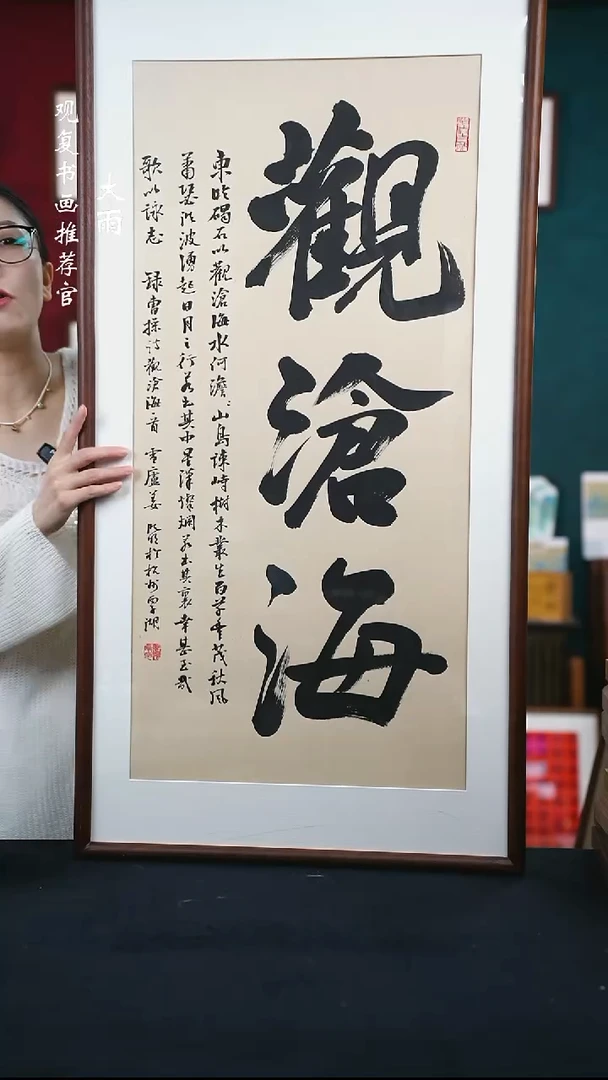 觀滄海
東臨碣石以觀滄海水何澹:山島竦峙樹木叢生百草豐茂秋風
蕭瑟洪波湧起日月之行若出其中星漢燦爛若出其裏幸甚至哉
歌以詠志 録曹操詩觀滄海首 雪廬姜 於杭州 湖
观复书画推荐官
大雨